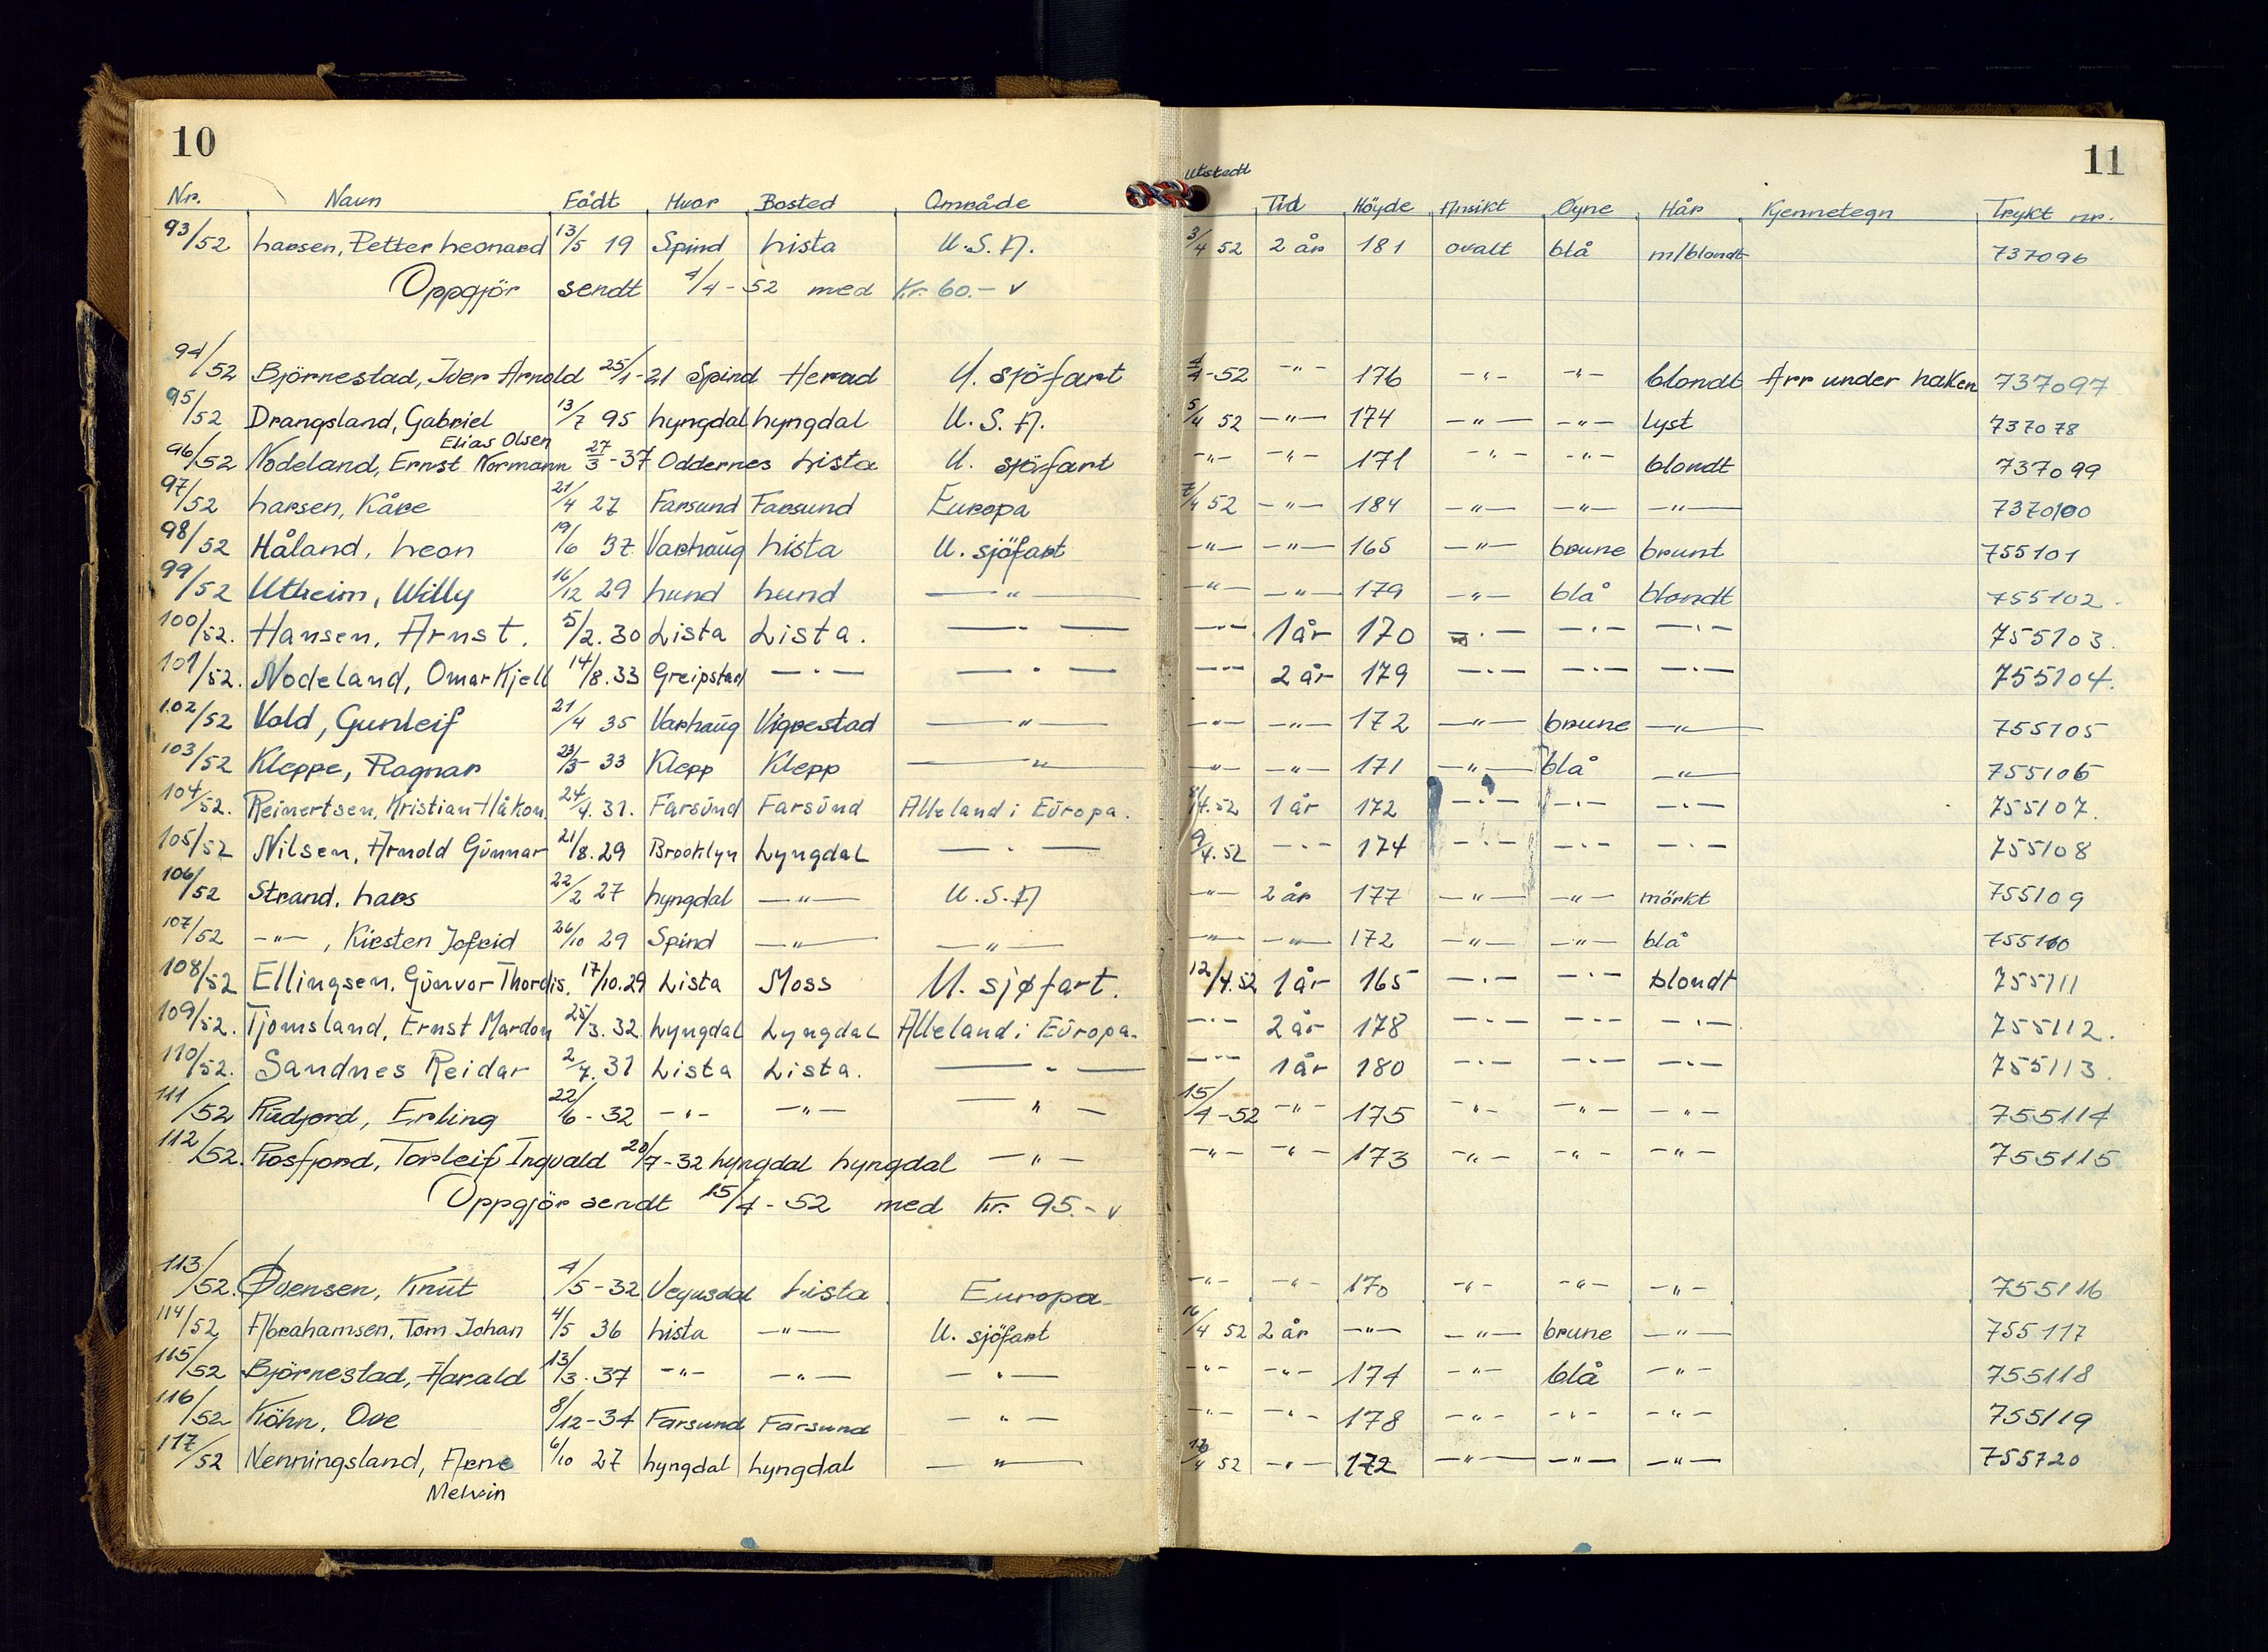 10
11
Nr. Navn Född Hvor Bosted Område Utstedt Tid Höyde Ansikt Öyne Hår Kjennetegn Trykt nr.
93/52 Larsen, Petter Leonard 13/5 19 Spind Lista U.S.A. 3/4 52 2 år 181 ovalt blå m/blondt 737096
Oppgjör sendt 4/4-52 med Kr. 60.- v
94/52 Björnestad, Iver Arnold 25/1-21 Spind Herad U. sjöfart 4/4-52 -"- 176 -"- -"- blondt Arr under haken 737097
95/52 Drangsland, Gabriel 13/7 95 Lyngdal Lyngdal U.S.A. 5/4 52 -"- 174 -"- -"- lyst 737078
Elias Olsen
96/52 Nodeland, Ernst Normann 27/3-37 Oddernes Lista U. sjöfart -"- -"- 171 -"- -"- blondt 737099
97/52 Larsen, Kåre 21/4 27 Farsund Farsund Europa 7/4 52 -"- 184 -"- -"- -"- 737100
98/52 Håland, Leon 19/6 37 Varhaug Lista U. sjöfart -"- -"- 165 -"- brune brunt 755101
99/52 Utheim, Willy 16/12 29 Lund Lund -"- -"- -"- 179 -"- blå blondt 755102.
100/52. Hansen, Arnst. 5/2.30 Lista Lista. -"- -"- 1 år 170 -"- -"- -"- 755103.
101/52. Nodeland, Omar Kjell 14/8.33 Greipstad -"- -"- -"- 2 år 179 -"- -"- -"- 755104.
102/52 Vold, Gunleif 21/4 35 Varhaug Vigrestad -"- -"- -"- 172 -"- brune -"- 755105
103/52 Kleppe, Ragnar 23/3-33 Klepp Klepp -"- -"- -"- 171 -"- blå -"- 755106
104/52. Reinertsen, Kristian Håkon. 24/4.31. Farsund Farsund Alle land i Europa. 8/4.52 1 år 172 -"- -"- -"- 755107.
105/52 Nilsen, Arnold Gunnar 21/8.29 Brooklyn Lyngdal -"- 9/4.52 -"- 174 -"- -"- -"- 755108
106/52 Strand, Lars 22/2 27 Lyngdal -"- U.S.A -"- 2 år 177 -"- -"- mörkt 755109
107/52 -"-, Kirsten Jofrid 26/10 29 Spind -"- -"- -"- -"- 172 -"- -"- blå 755110
108/52 Ellingsen, Gunvor Thordis. 17/10.29 Lista Moss U. sjøfart. 12/4.52 1 år 165 -"- -"- blondt 755111
109/52. Tjomsland, Ernst Mardon 25/3.32 Lyngdal Lyngdal Alle land i Europa. -"- 2 år 178 -"- -"- -"- 755112.
110/52. Sandnes Reidar 2/7.31 Lista Lista. -"- -"- 1 år 180 -"- -"- -"- 755113.
111/52 Rudjord, Erling 22/6-32 -"- -"- -"- 15/4-52 -"- 175 -"- -"- -"- 755114
112/52. Rosfjord, Torleif Ingvald 20/7-32 Lyngdal Lyngdal -"- -"- -"- 173 -"- -"- -"- 755115
Oppgjör sendt 15/4-52 med Kr. 95.- v
113/52. Øvensen, Knut 4/5-32 Vegusdal Lista Europa -"- -"- 170 -"- -"- -"- 755116
114/52 Abrahamsen, Tom Johan 4/5 36 Lista -"- U. sjöfart 16/4 52 2 år -"- -"- brune -"- 755117
115/52 Björnestad, Harald 13/3.37 -"- -"- -"- -"- -"- 174 -"- blå -"- 755118
116/52 Köhn, Ove 8/12-34 Farsund Farsund -"- -"- -"- 178 -"- -"- -"- 755119
117/52 Nenningsland, Arne 6/10 27 Lyngdal Lyngdal -"- 17/4 52 -"- 172 -"- -"- -"- 755120
Melvin